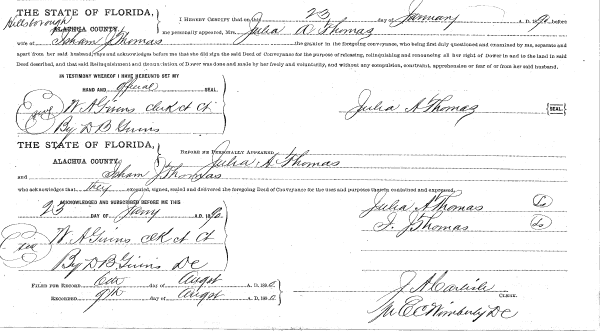 THE STATE OF FLORIDA,
Hillsborough
ALACHUA COUNTY.
I HEREBY CERTIFY that on this 23 day of January A. D. 1890, before
me personally appeared, Mrs. Julia A Thomas
wife of Isham J Thomas the grantor in the foregoing conveyance, who being first duly questioned and examined by me, separate and
apart from her said husband, says and acknowledges before me that she did sign the said Deed of Conveyance for the purpose of releasing, relinquishing and renouncing all her right of Dower in and to the land in said
Deed described, and that said Relinquishment and Renunciation of Dower was done and made by her freely and voluntarily, and without any compulsion, constraint, apprehension or fear of or from her said husband.
IN TESTIMONY WHEREOF I HAVE HEREUNTO SET MY
HAND AND official SEAL
Seal W A Givins clerk ct Ct
By D B Givins
Julia A Thomas SEAL
THE STATE OF FLORIDA,
ALACHUA COUNTY.
BEFORE ME PERSONALLY APPEARED Julia A. Thomas
and Isham J Thomas
who acknowledges that they executed, signed, sealed and delivered the foregoing Deed of Conveyance for the uses and purposes therein contained and expressed.
ACKNOWLEDGED AND SUBSCRIBED BEFORE ME THIS
23 DAY OF Jany A.D. 1890
Julia A Thomas Ls
I. J Thomas Ls
W A Givins clk ct Ct
By D B Givins DC
FILED FOR RECORD 6th day of Augst A. D. 1890
RECORDED 9th day of Augst A. D. 1890
J A Carlisle
CLERK.
Wimberly DC